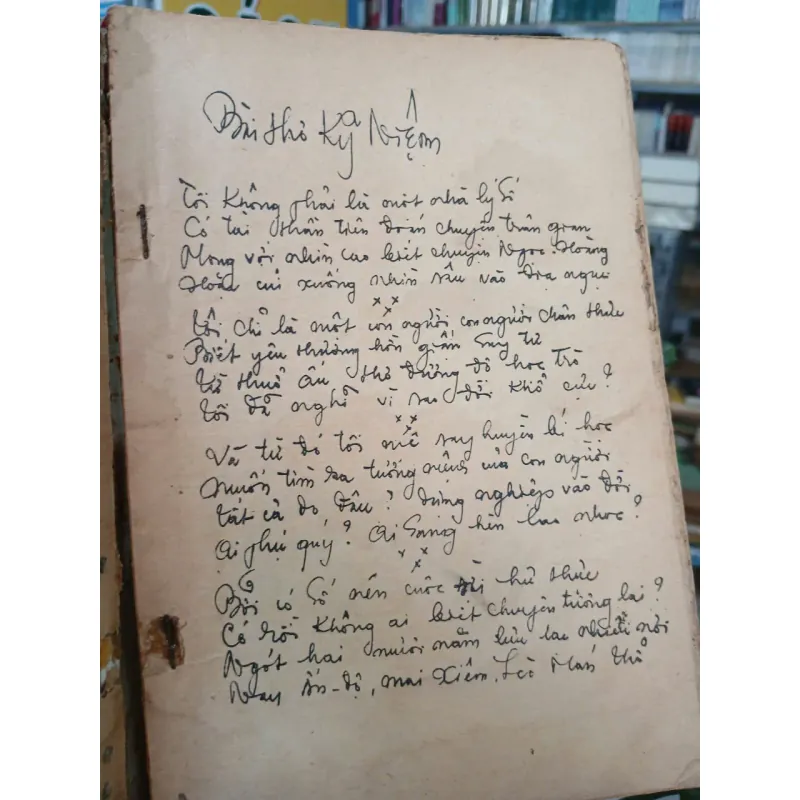 Bài thơ Kỷ Niệm
Tôi không phải là một nhà lý số
Có tài thần tiên đoán chuyện trần gian
Mong vời nhìn cao biết chuyện Ngọc-Hoàng
Hoặc cúi xuống nhìn sâu vào địa ngục
x x x
Tôi chỉ là một con người con người chân thực
Biết yêu thương hờn giận suy tư
Từ thuở ấu thơ đường đô học trò
Tôi đã nghĩ vì sao đời khổ cực?
x x x
Và từ đó tôi mê say huyền bí học
Muốn tìm ra tướng mệnh của con người
Tất cả do đâu? dựng nghiệp vào đời
Ai phú quý? Ai sang hèn lao nhọc?
x x x
Bởi có số nên cuộc đời hư thực
Cõ rồi không ai biết chuyện tương lai?
Ngót hai mươi năm lưu lạc nhiều nơi
Nay Ấn-độ, mai Xiêm, Lèo Mán Thổ